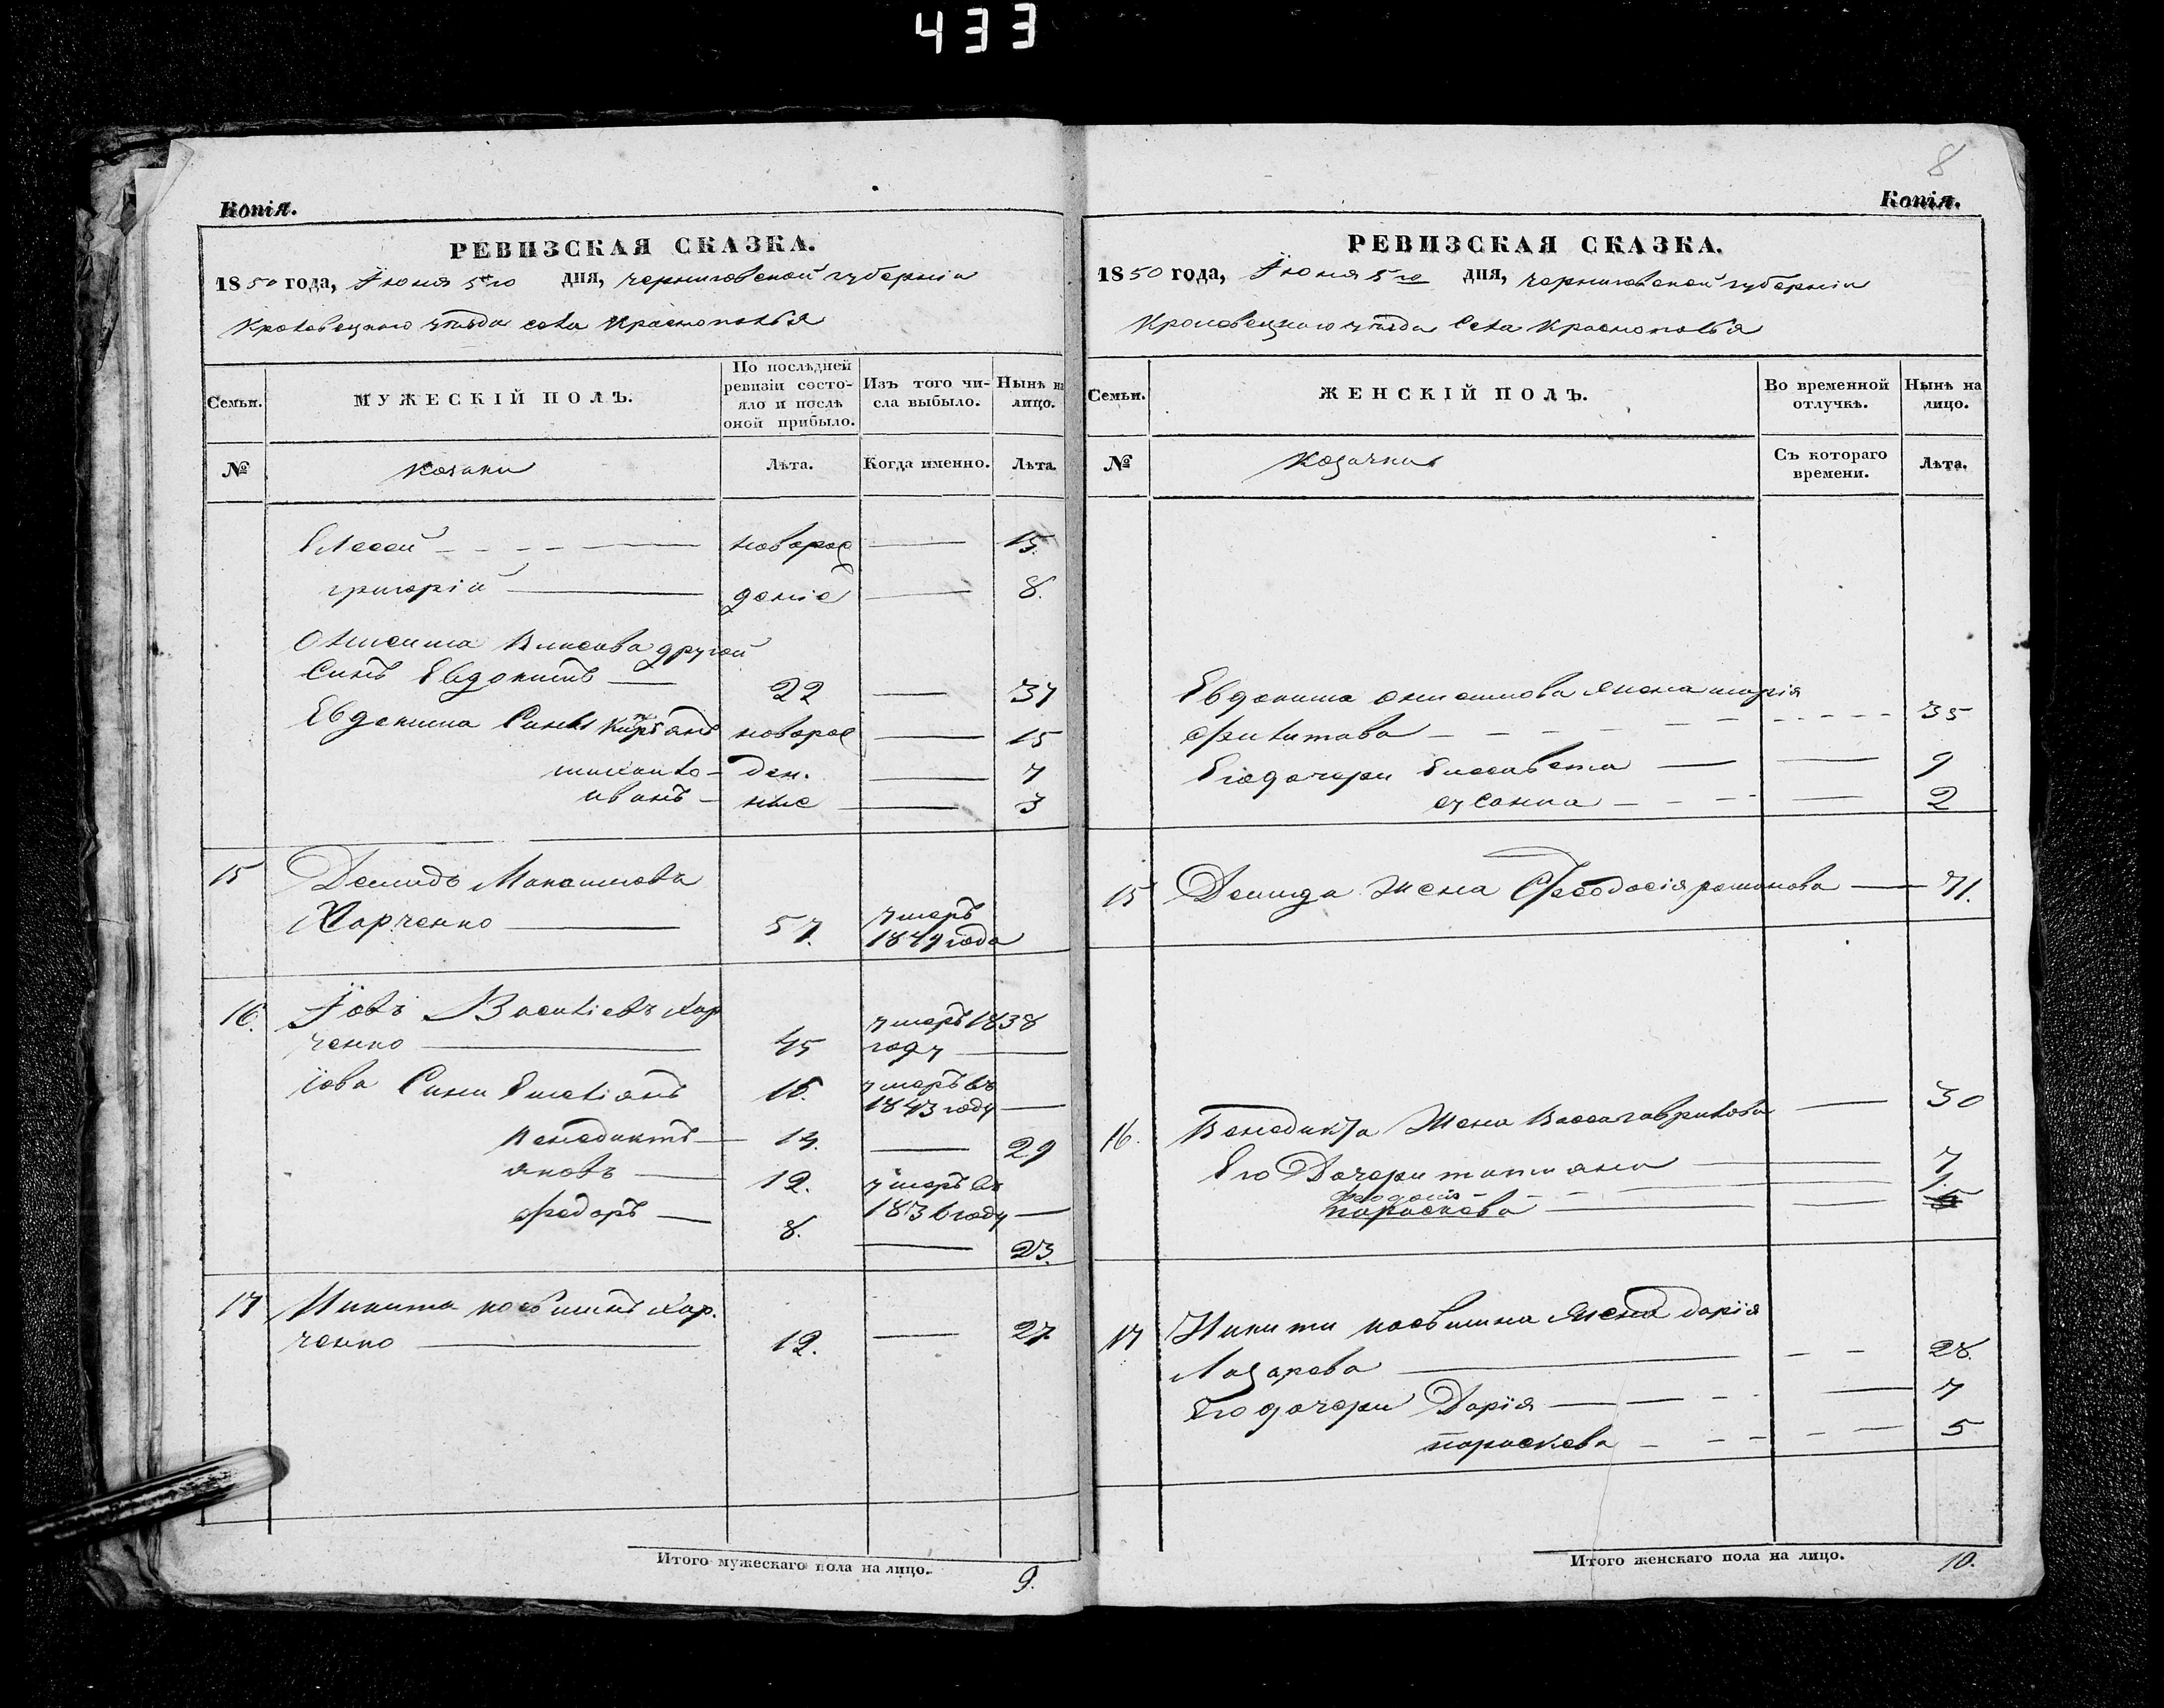 433
8
Копія.
РЕВИЗСКАЯ СКАЗКА.
1850 года, Іюня 5го дня, черниговской губерніи
Кролевецкого уѣзда села Краснополья
Семьи.
МУЖЕСКІЙ ПОЛЪ.
По послѣдней ревизіи состояло и послѣ оной прибыло.
Изъ того числа выбыло.
Нынѣ на лицо.
№
Козаки
Лѣта.
Когда именно.
Лѣта.
Елесей новорож 15.
григорій деніе 8.
другой
Синъ Евдокимъ 22 37
Евдокима Сины новорож 15
ден. 7
иванъ ные 3
15 Демидъ Максимовъ
Харченко 57. умеръ 1849 года
16. Іовъ Василіевъ Хар
ченко 45 умеръ 1838 году
іова Сини Емеліянъ 16. умеръ въ 1843 году
Венедиктъ 14. 29
яковъ 12. умеръ въ 1836 году
федоръ 8. 23.
17 Никита Хар.
ченко 12. 27
Итого мужескаго пола на лицо. 9.
Копія.
РЕВИЗСКАЯ СКАЗКА.
1850 года, Іюня 5го дня, черниговской губерніи
Кролевецкого уѣзда Села Краснополья
Семьи.
ЖЕНСКІЙ ПОЛЪ.
Во временной отлучкѣ.
Нынѣ на лицо.
№
Козачки
Съ котораго времени.
Лѣта.
Евдокима жена марія
филипова 35
Его дочери Елисавета 9
2
15 Демида Жена Феодосія романова 71.
16. Венедикта Жена Васса гаврилова 30
Его Дочери татияна 7
парасковя
17 Никити жена дарія
Лазарева 28.
Его дочери Дарія 7
парасковя 5
Итого женскаго пола на лицо. 10.